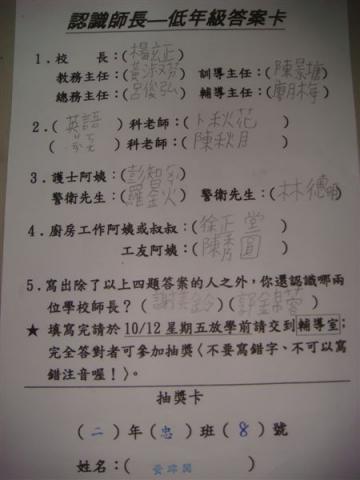 認識師長—低年級答案卡
1.校　　長:(楊玄正)
教務主任:(黃淑芬) 訓導主任:(陳景墉)
總務主任:(呂俊弘) 輔導主任:(梅)
2.(英語)科老師:(卜秋花)
( )科老師:(陳秋月)
3.護士阿姨:(彭智)
警衛先生:(羅星火) 警衛先生:(林德明)
4.廚房工作阿姨或叔叔:(徐正堂)
工友阿姨:(陳秀圓)
5.寫出除了以上四題答案的人之外,你還認識哪兩
位學校師長?(謝玲)(郭錦)
★ 填寫完請於10/12星期五放學前請交到輔導室;
完全答對者可參加抽獎〈不要寫錯字、不可以寫
錯注音喔!〉。
抽獎卡
(二)年(忠)班(8)號
姓名:( )